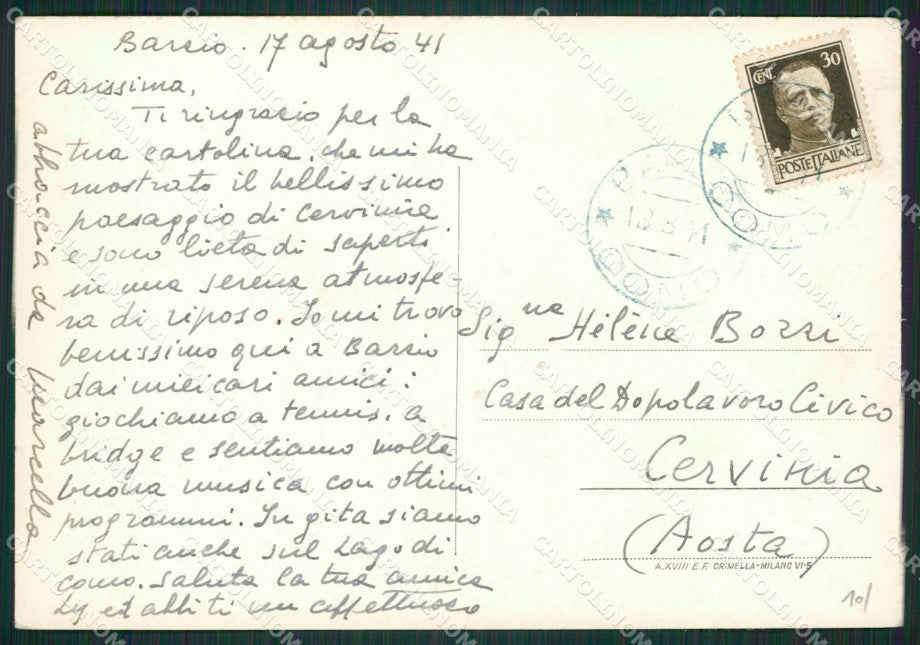 Barzio. 17 agosto 41
Carissima,
Ti ringrazio per la
tua cartolina, che mi ha
mostrato il bellissimo
paesaggio di Cervinia
e sono lieta di saperti
in una serena atmosfe-
ra di riposo. Io mi trovo
benissimo qui a Barzio
dai miei cari amici:
giochiamo a tennis, a
bridge e sentiamo molta
buona musica con ottimi
programmi. In gita siamo
stati anche sul Lago di
Como. Saluta la tua amica
Ly ed abbiti un affettuoso
abbraccio da Marcella
CENT. 30
POSTE ITALIANE
18.8.41
COMO
COMO
Sig.na Hélène Bozzi
Casa del Dopolavoro Civico
Cervinia
(Aosta)
A.XVIII E.F. CRIMELLA-MILANO VI-5
10/
CARTOLINOMANIA